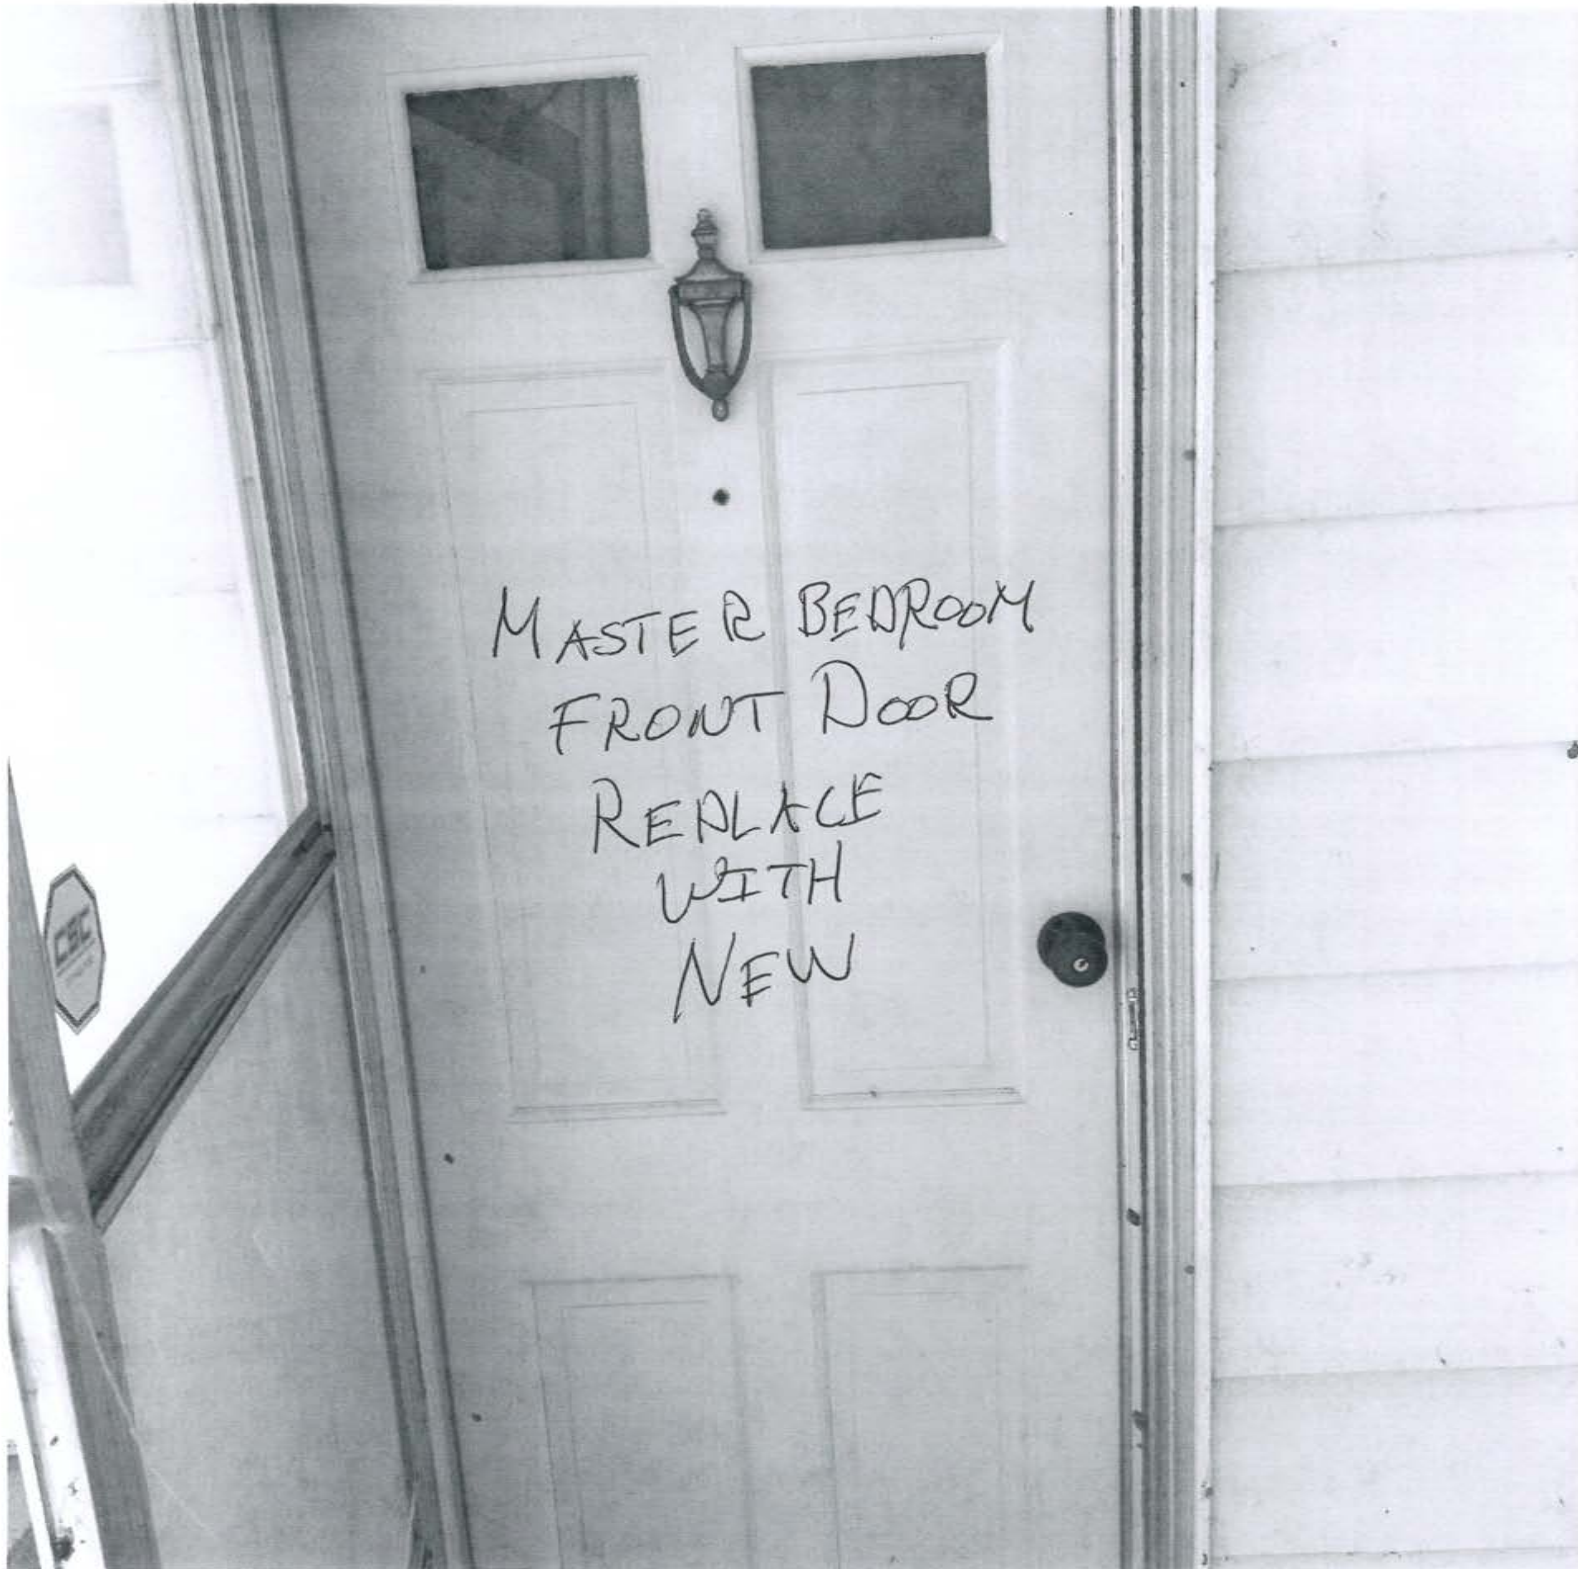 MASTER BEDROOM
FRONT DOOR
REPLACE
WITH
NEW
CBC